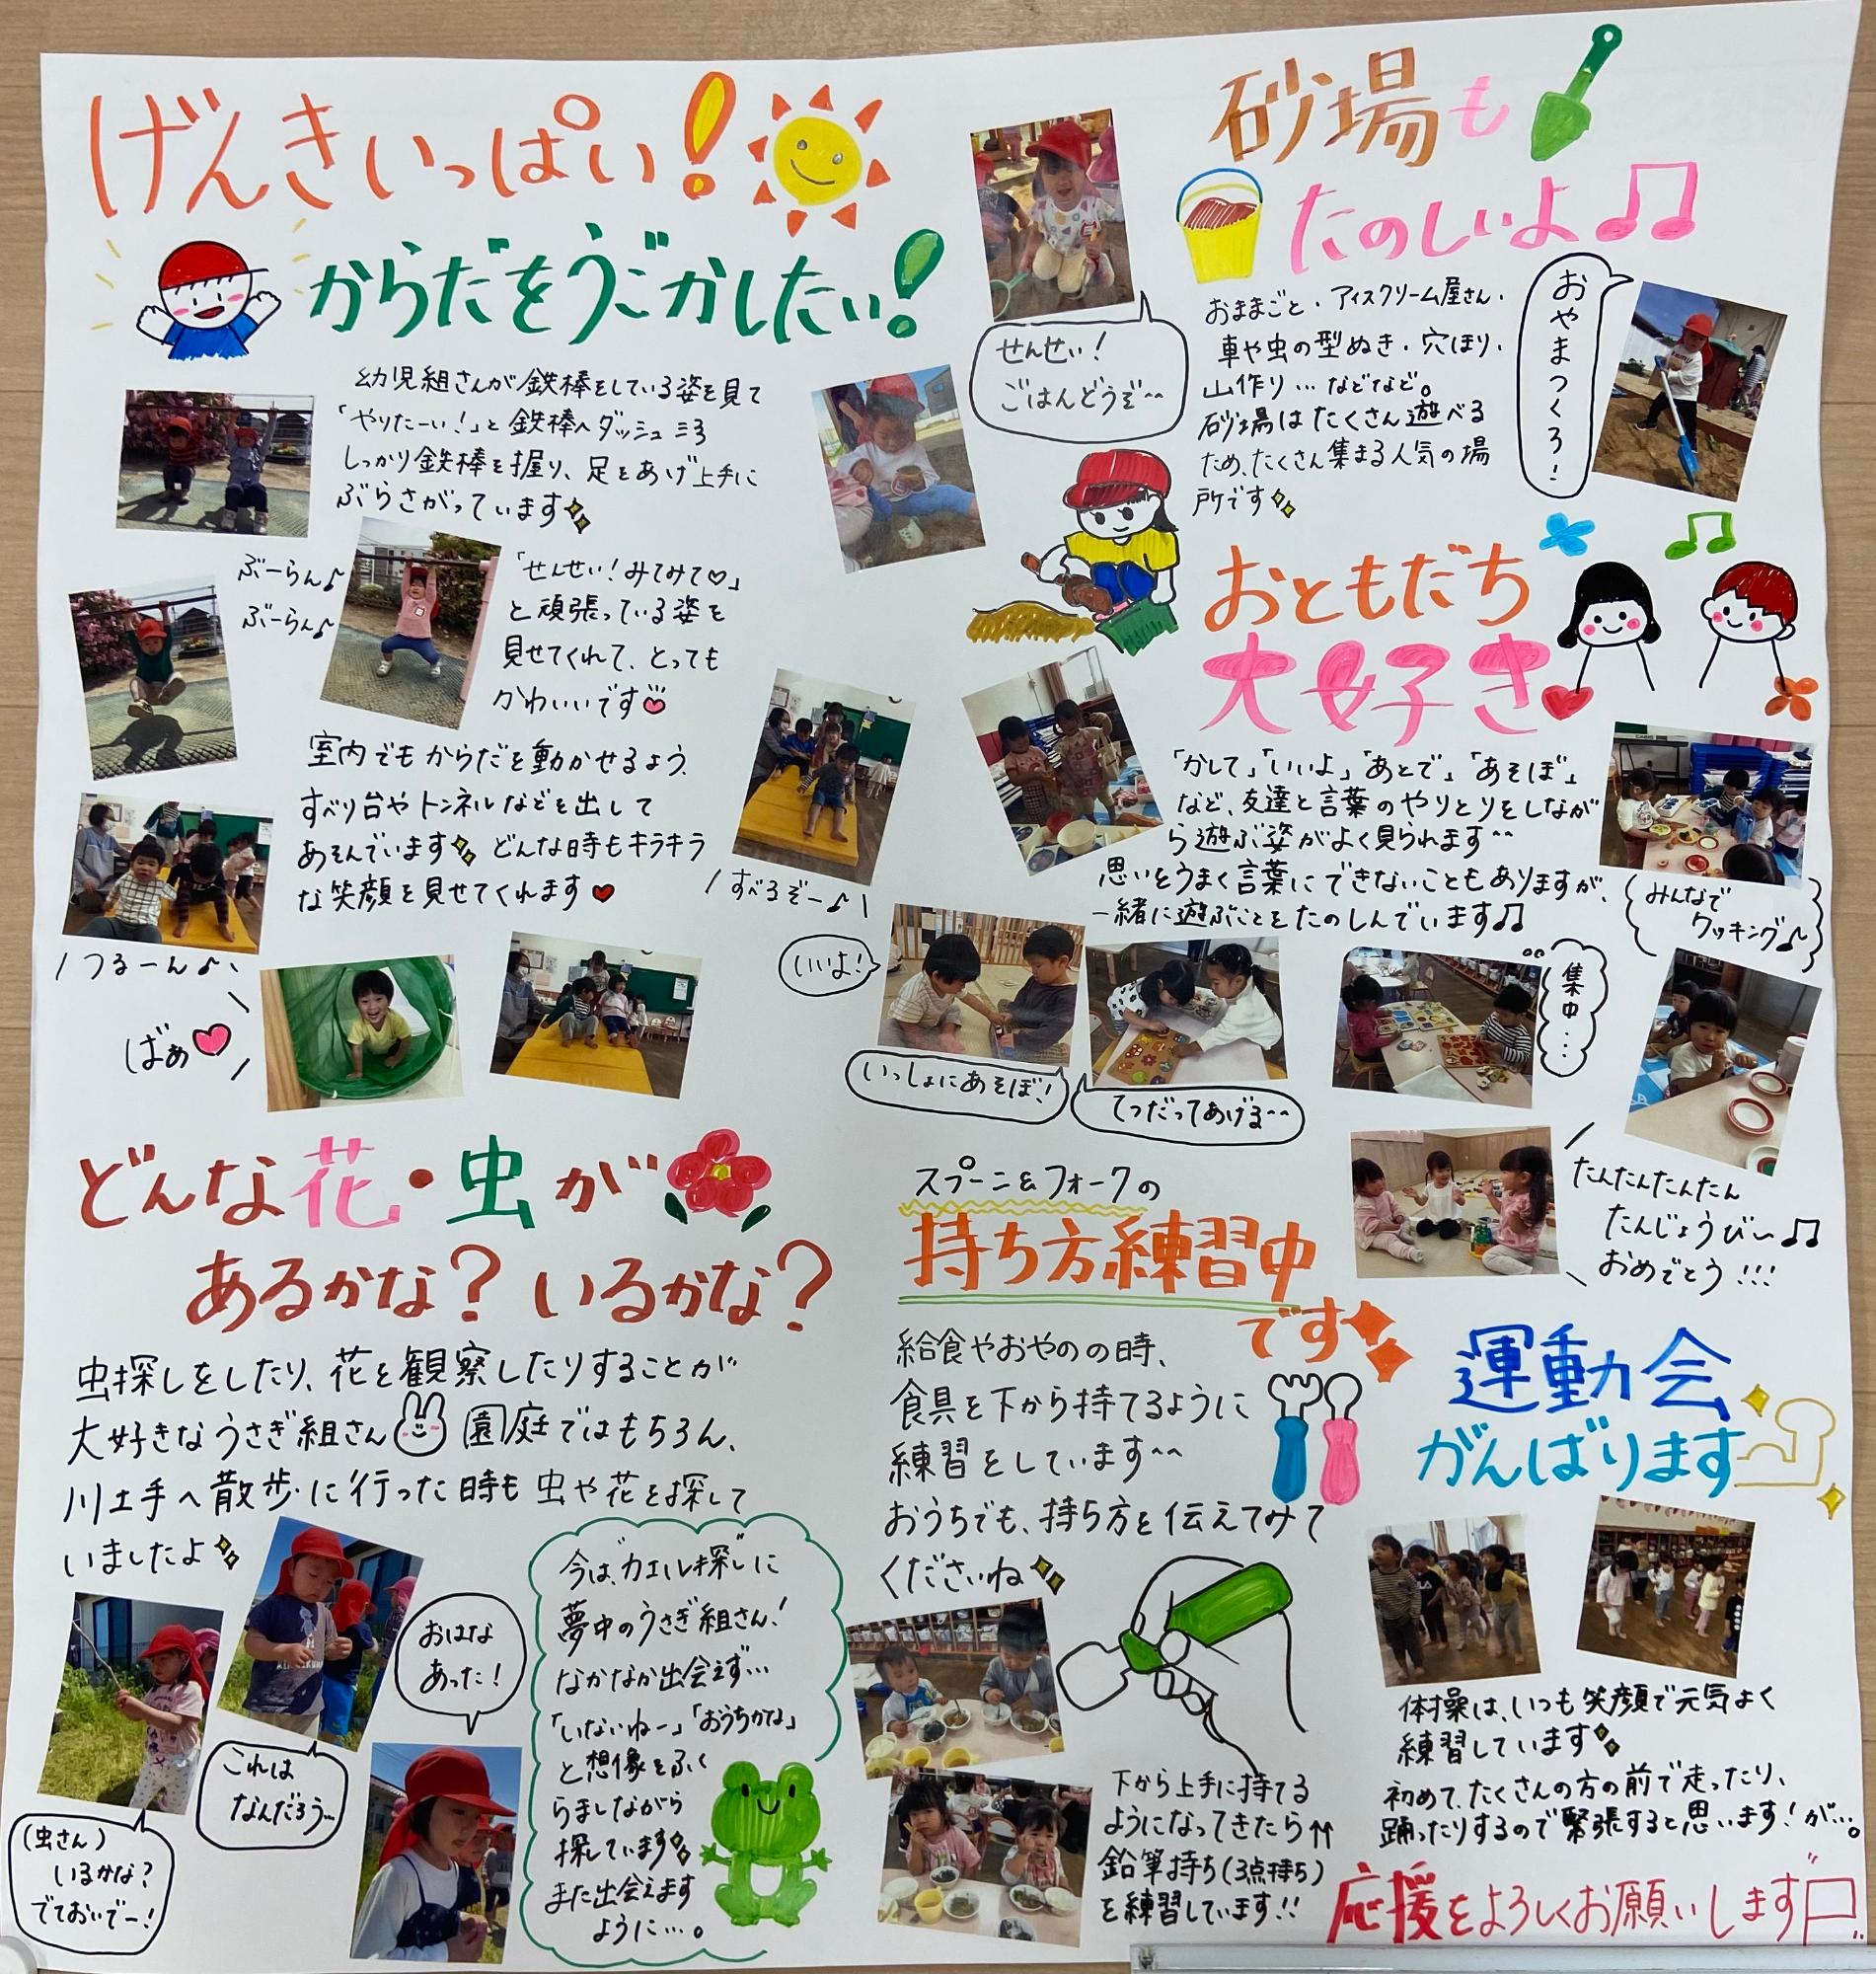 げんきいっぱい！
からだをうごかしたい！
幼児組さんが鉄棒をしている姿を見て
「やりたーい！」と鉄棒へダッシュ
しっかり鉄棒を握り、足をあげ上手に
ぶらさがっています
ぶーらん♪
ぶーらん♪
「せんせい！みてみて♡」
と頑張っている姿を
見せてくれて、とっても
かわいいです
室内でもからだを動かせるよう、
すべり台やトンネルなどを出して
あそんでいます どんな時もキラキラ
な笑顔を見せてくれます♥
すべるぞー♪
つるーん♪
ばぁ♥
砂場も
たのしいよ♫
せんせい！
ごはんどうぞ~~
おままごと・アイスクリーム屋さん・
車や虫の型ぬき・穴ほり・
山作り…などなど。
砂場はたくさん遊べる
ため、たくさん集まる人気の場
所です
おやまつくろ！
おともだち
大好き♥
「かして」「いいよ」「あとで」「あそぼ」
など、友達と言葉のやりとりをしなが
ら遊ぶ姿がよく見られます^^
思いをうまく言葉にできないこともありますが、
一緒に遊ぶことをたのしんでいます♫
みんなで
クッキング♪
いいよ！
いっしょにあそぼ！
てつだってあげる~~
集中…
たんたんたんたん
たんじょうび〜♫
おめでとう!!!
どんな花・虫が
あるかな？いるかな？
虫探しをしたり、花を観察したりすることが
大好きなうさぎ組さん 園庭ではもちろん、
川土手へ散歩に行った時も虫や花を探して
いましたよ
おはな
あった！
これは
なんだろう…
(虫さん)
いるかな？
でておいでー！
今は、カエル探しに
夢中のうさぎ組さん！
なかなか出会えず…
「いないねー」「おうちかな」
と想像をふく
らましながら
探しています
また出会えます
ように…。
スプーン&フォークの
持ち方練習中
です
給食やおやつの時、
食具を下から持てるように
練習をしています^^
おうちでも、持ち方を伝えてみて
くださいね
下から上手に持てる
ようになってきたら↑↑
鉛筆持ち(3点持ち)
を練習しています!!
運動会
がんばります
体操は、いつも笑顔で元気よく
練習しています
初めて、たくさんの方の前で走ったり、
踊ったりするので緊張すると思います！が…。
応援をよろしくお願いします